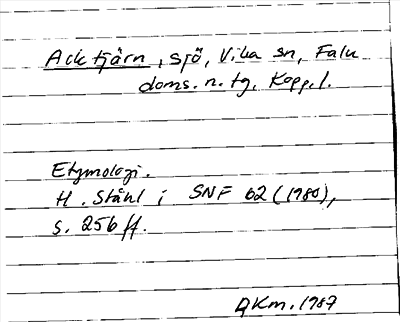 Acktjärn, sjö, Vika sn, Falu
doms. n. tg, Kopp. l.
Etymologi.
H. Ståhl i SNF 62 (1980),
s. 256 ff.
AKm. 1987